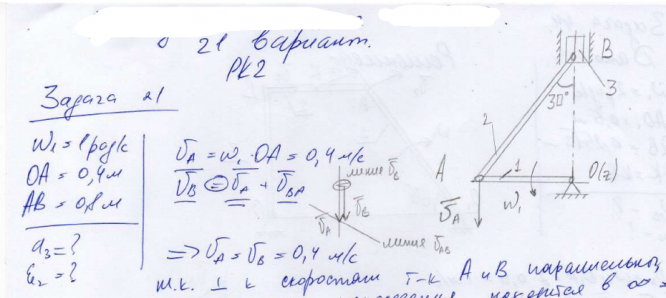 21 вариант.
РК2
Задача 21
ω₁ = 1 рад/с
OA = 0,4 м
AB = 0,8 м
a₃ = ?
ε₂ = ?
v̄_A = ω₁ · OA = 0,4 м/с
v̄_B = v̄_A + v̄_BA
линия v̄_B
v̄_A
v̄_B
линия v̄_AB
=> v_A = v_B = 0,4 м/с
т.к. ⊥ к скоростям т-к A и B параллельны,
находится в ∞
B
3
30°
2
A
1
O(z)
ω₁
v̄_A